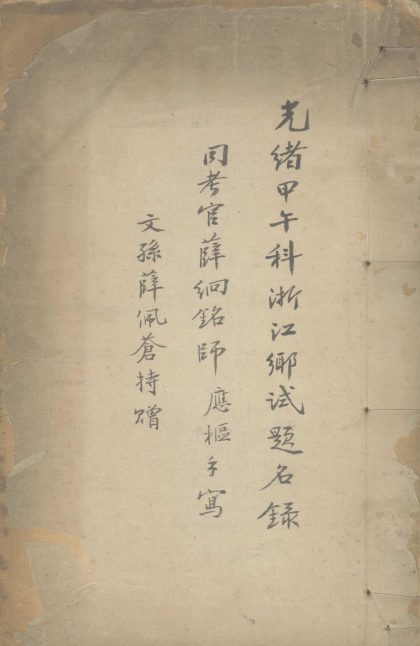 光緒甲午科浙江鄉試題名錄
同考官薛絅銘師應樞手寫
文孫薛佩蒼持贈